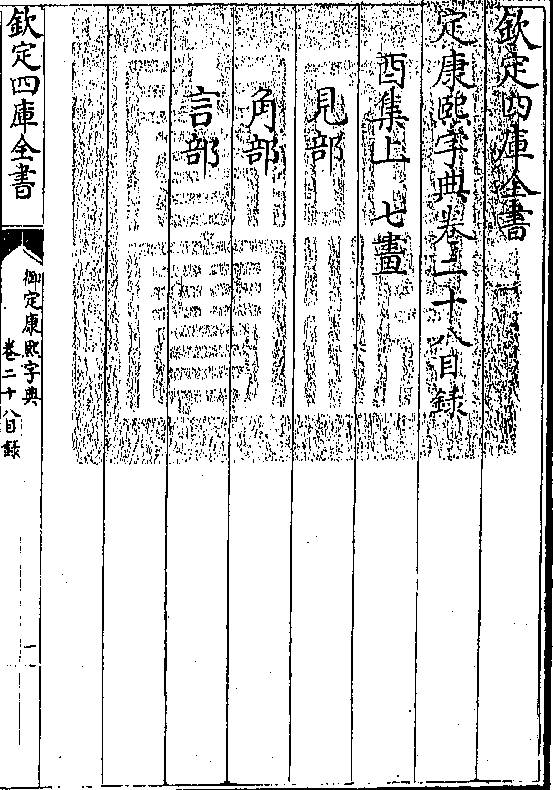 欽定四庫全書
定康熙字典卷二十八目録
酉集上 七畫
見部
角部
言部
欽定四庫全書
御定康熙字典
卷二十八目録
一